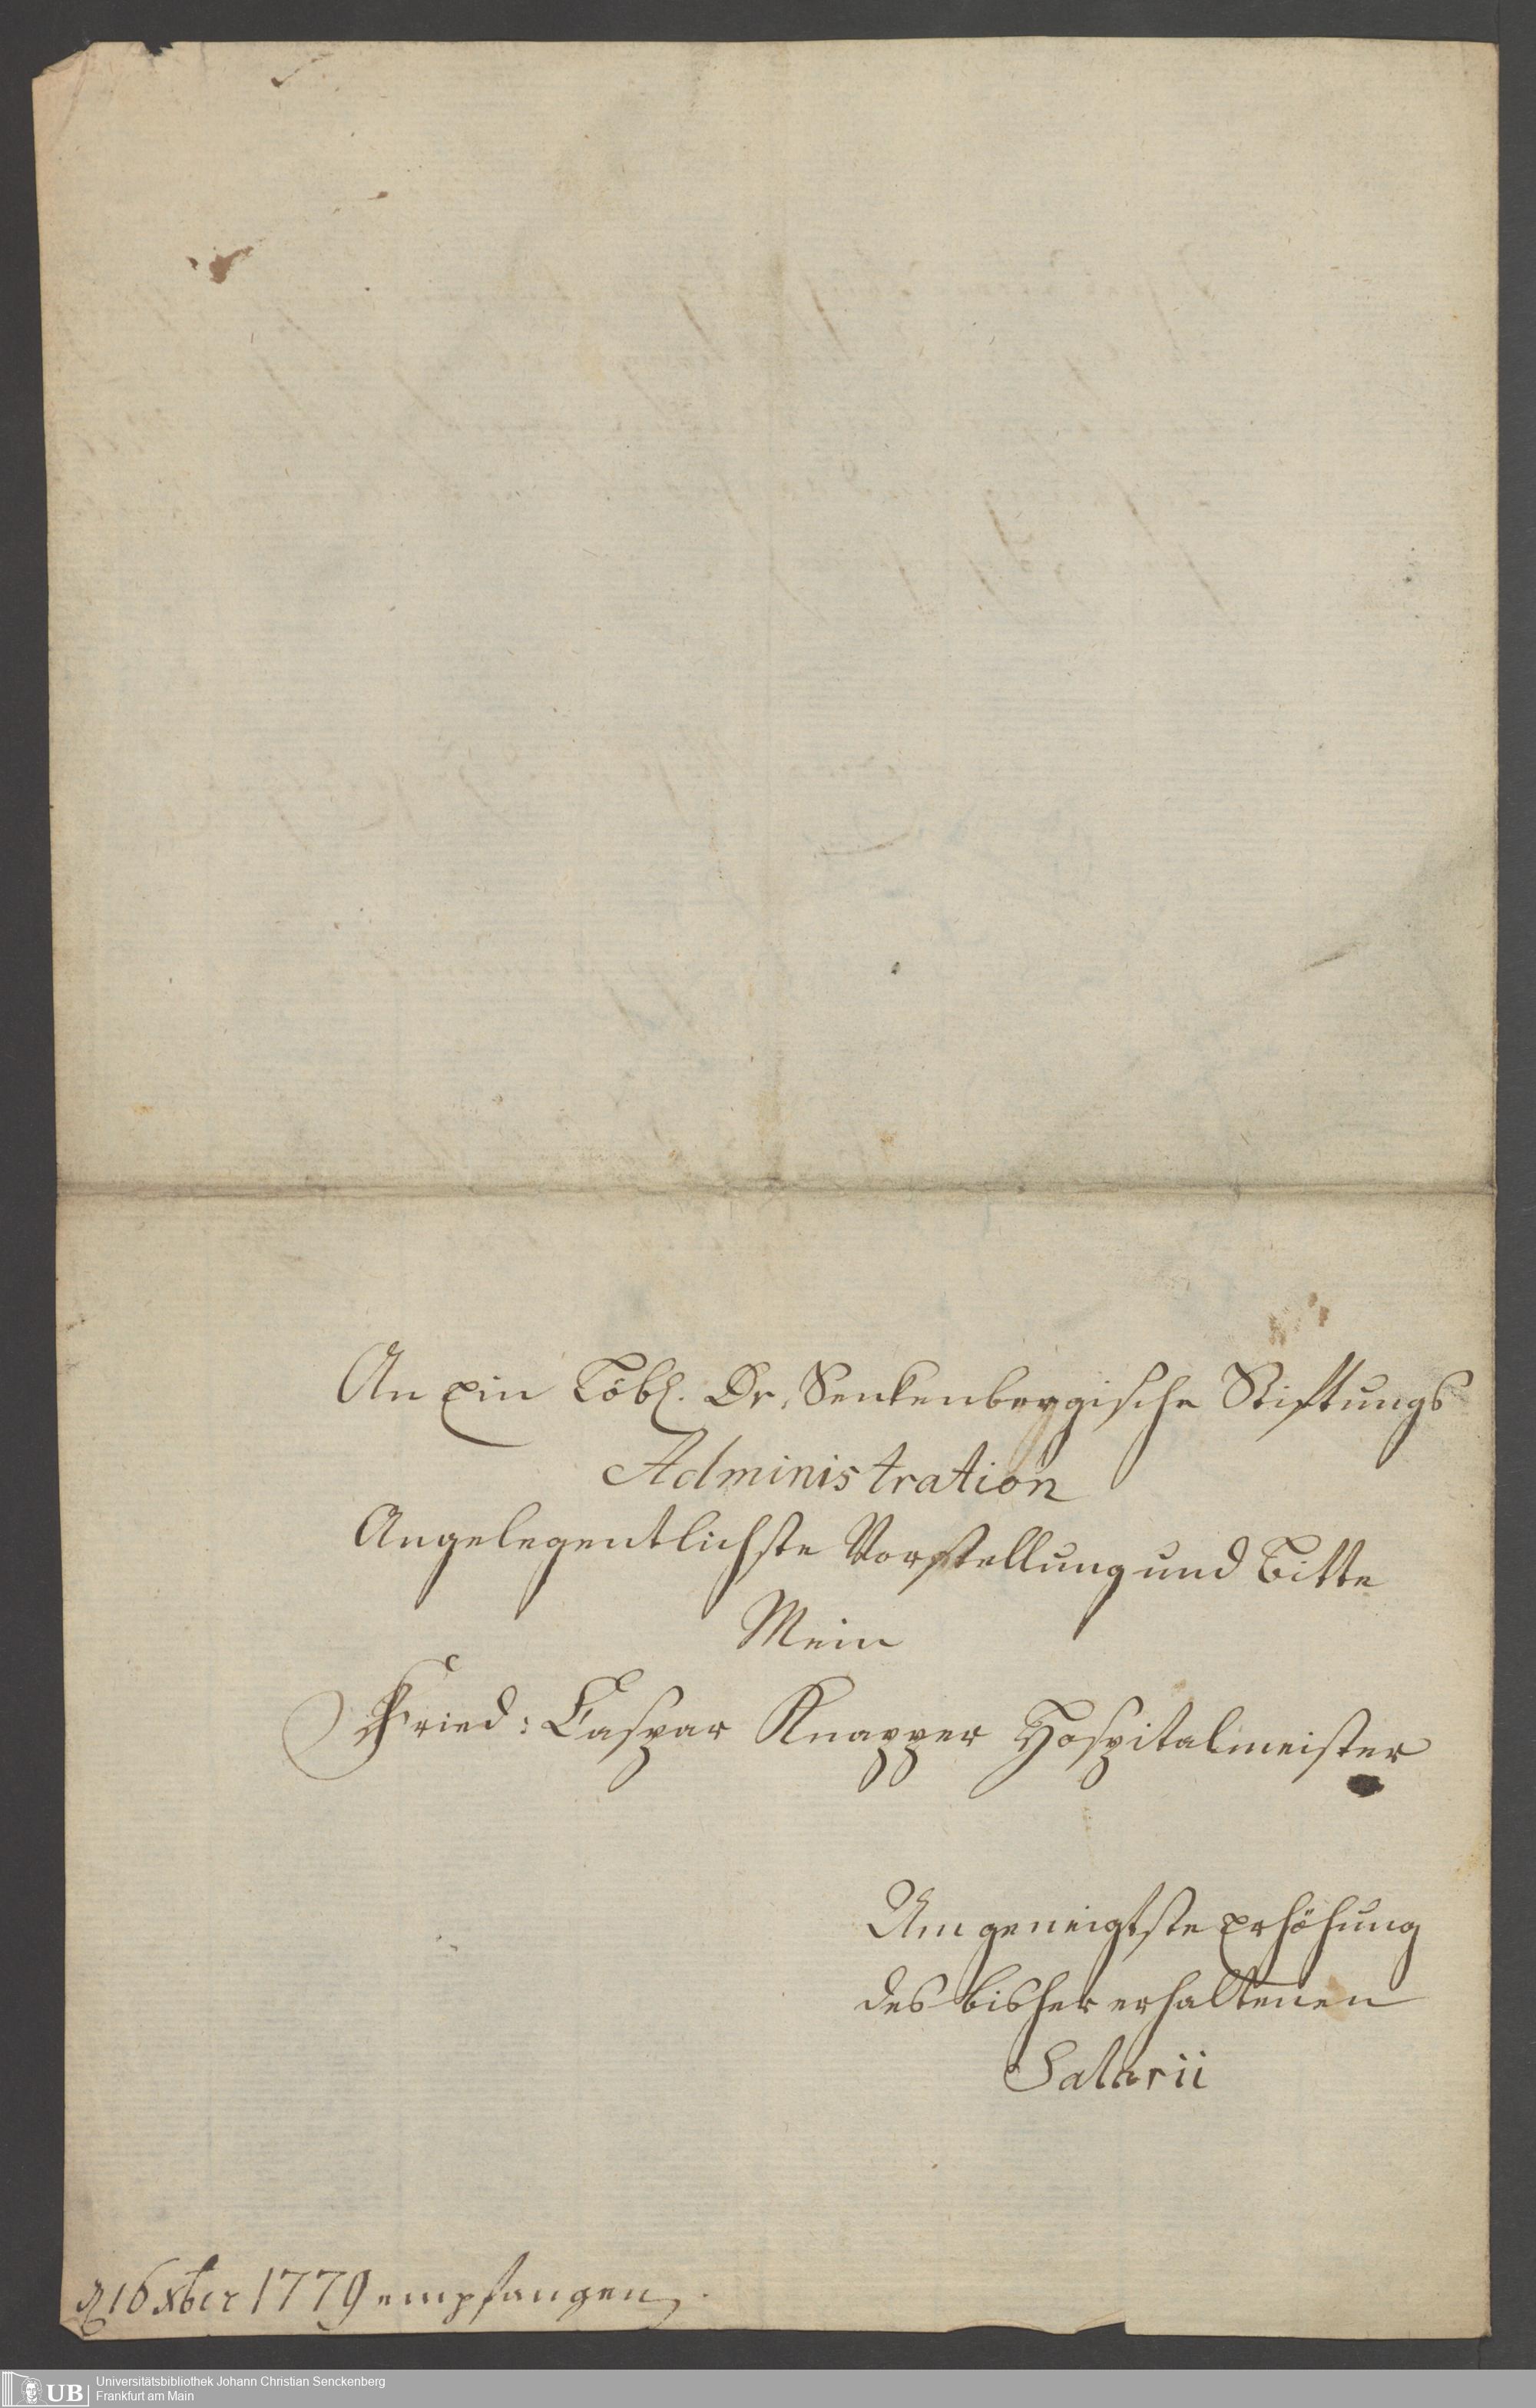 An ein Löbl. Dr. Senkenbergische Stiftungs
Administration
Angelegentlichste Vorstellung und Bitte
Mein
Fried: Caspar Knapper Hospitalmeister
Um geneigtste Erhöhung
des bisher erhaltenen
Salarii
16 xber 1779 empfangen.
UB
Universitätsbibliothek Johann Christian Senckenberg
Frankfurt am Main